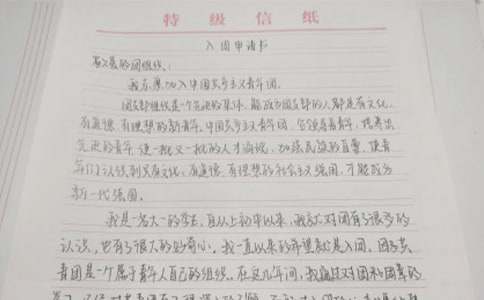 特级信纸
入团申请书
敬爱的团组织：
我志愿加入中国共产主义青年团。
团支部组织是一个先进的集体，能成为团支部的人都是有文化、
有道德、有理想的新青年。中国共产主义青年团，它领导着青年，培养出
先进的青年，使一批又一批的人才涌现，加强民族的自尊，使青
年们认识到只有文化、有道德、有理想的社会主义强国，才能成为
新一代强国。
我是一名大一的学生，自从上初中以来，我就对团有了很多的
认识，也有了很大的好奇心。我一直以来的希望就是入团，团
青团是一个属于青年人自己的组织。在这几年间，我通过对团和团章的